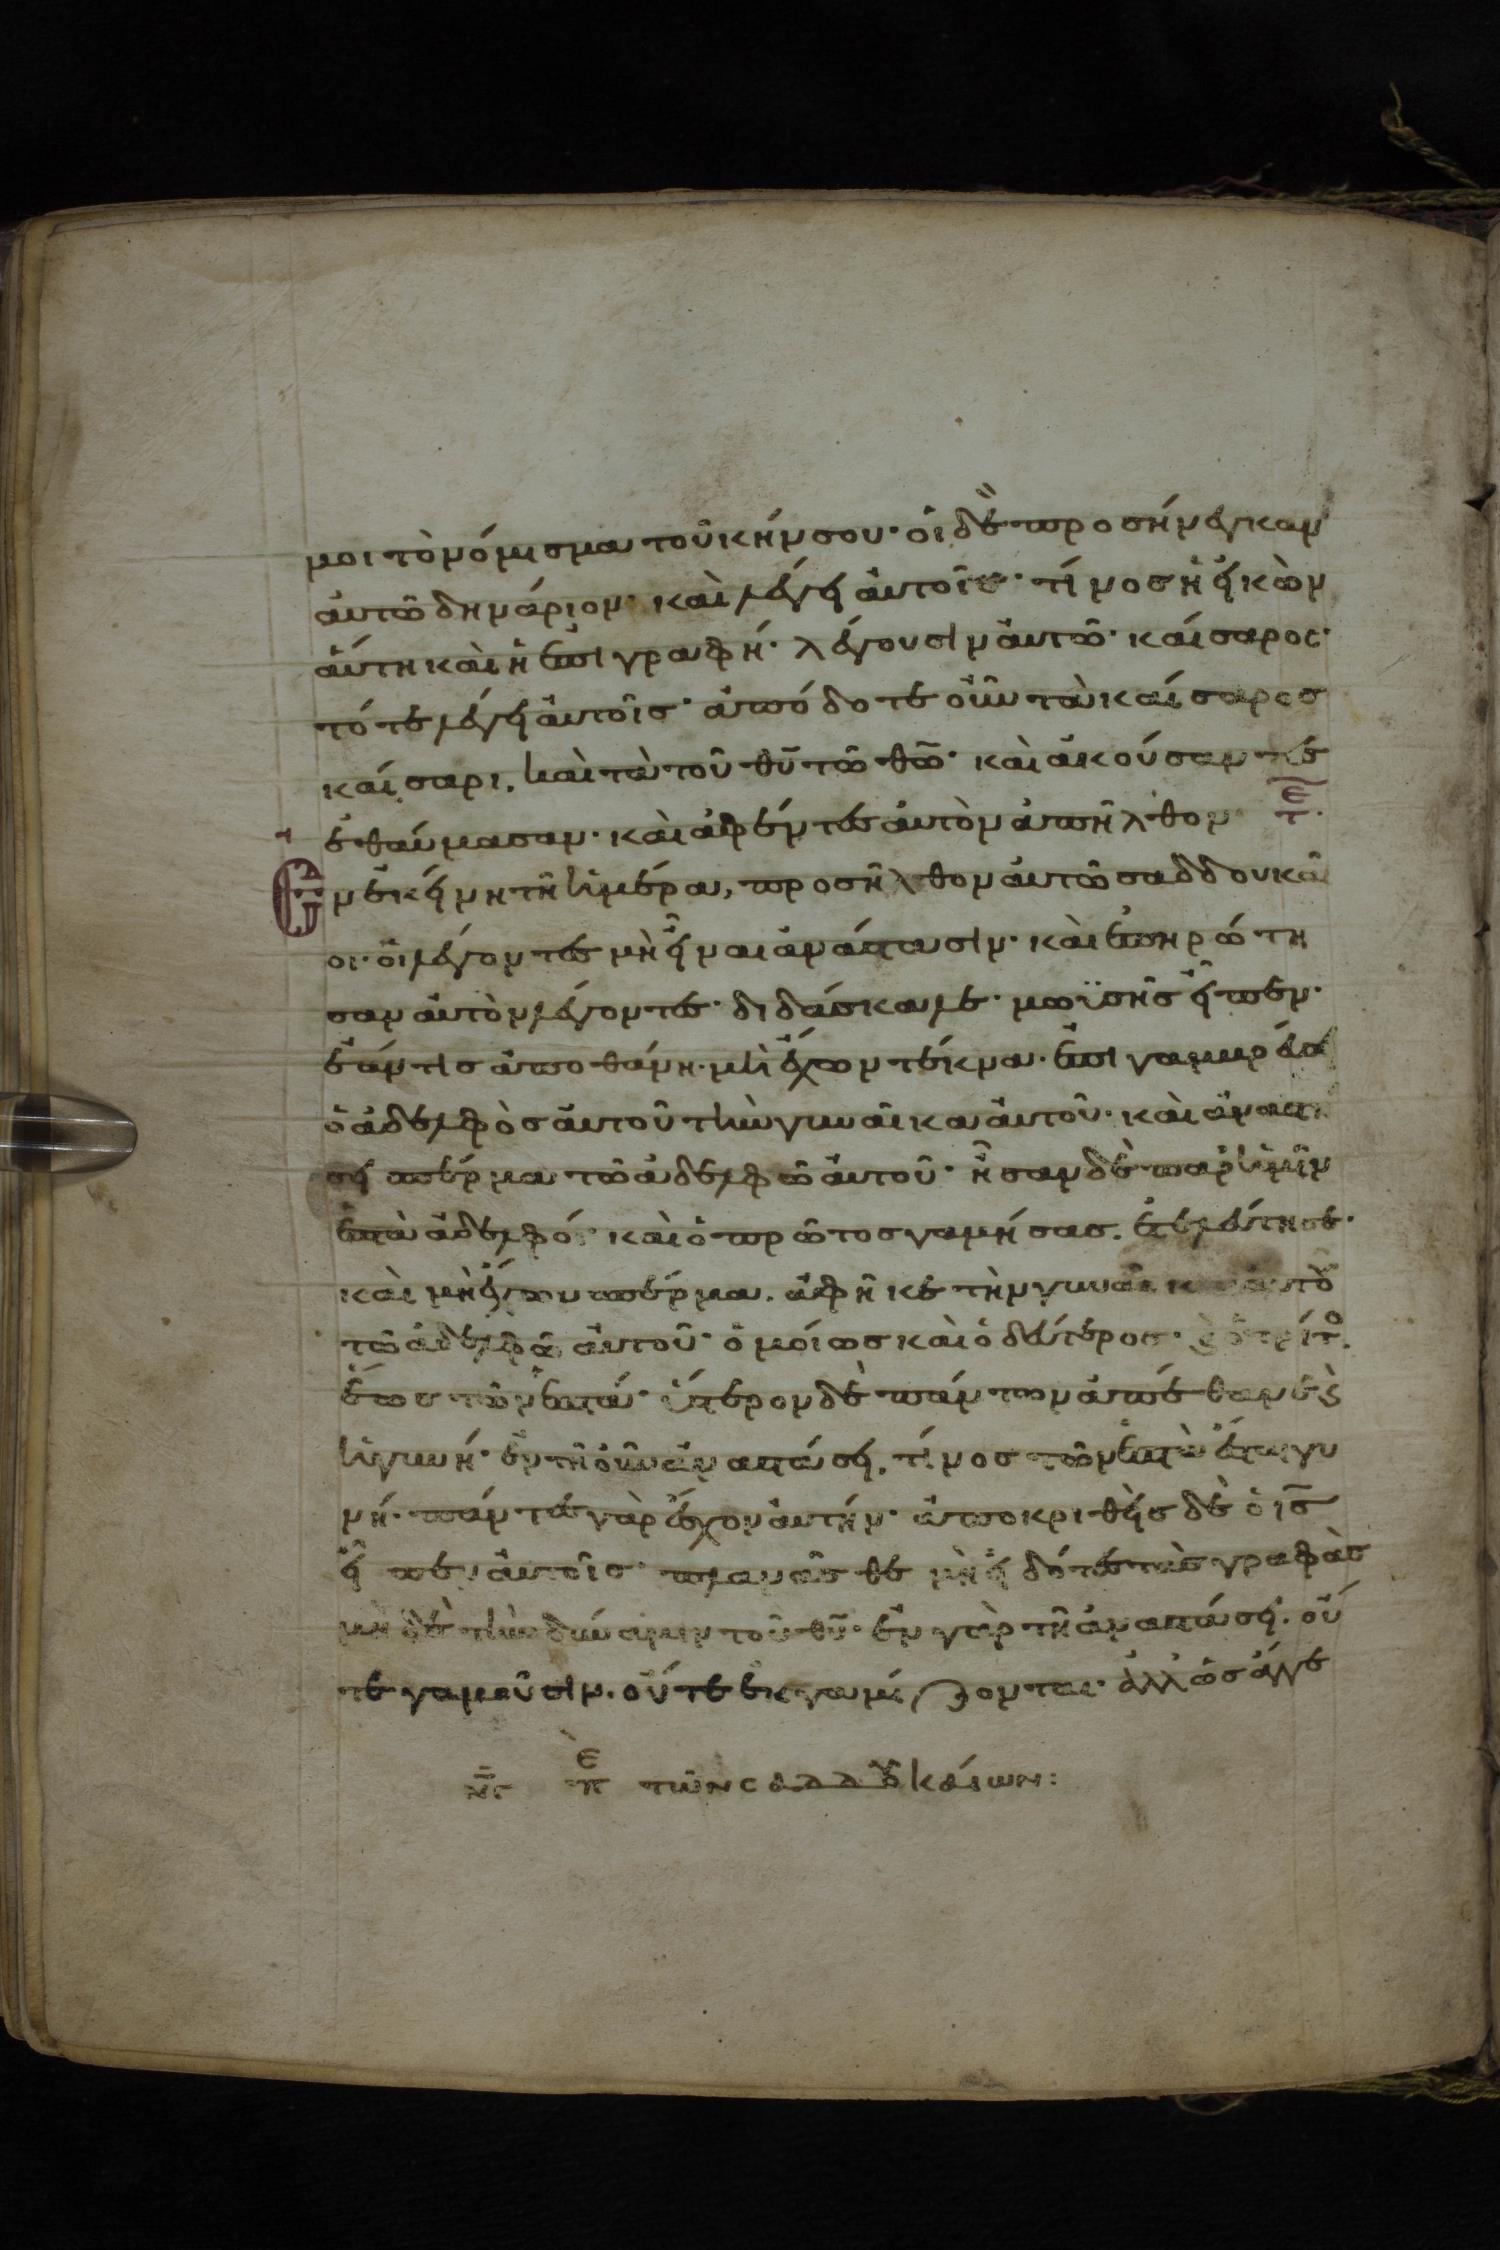 μοι τὸ νόμισμα τοῦ κήνσου· οἱ δὲ προσήνεγκαν
αὐτῶ δηνάριον· καὶ λέγει αὐτοῖς· τίνος ἡ εἰκὼν
αὕτη καὶ ἡ ἐπιγραφή· λέγουσιν αὐτῶ· καίσαρος·
τότε λέγει αὐτοῖς· ἀπόδοτε οὖν τὰ καίσαρος
καίσαρι, καὶ τὰ τοῦ θυ τῶ θω· καὶ ἀκούσαντες
ἐθαύμασαν· καὶ ἀφέντες αὐτὸν ἀπῆλθον τε
Ἐν ἐκείνη τῆ ἡμέρα, προσῆλθον αὐτῶ σαδδουκαῖ
οι· οἱ λέγοντες μὴ εἶναι ἀνάστασιν· καὶ ἐπηρώτη
σαν αὐτὸν λέγοντες· διδάσκαλε· μωϋσῆς εἶπεν·
ἐάν τις ἀποθάνη· μὴ ἔχων τέκνα· ἐπιγαμβρεύσει
ὁ ἀδελφὸς αὐτοῦ τὴν γυναῖκα αὐτοῦ· καὶ ἀναστή
σει σπέρμα τῶ ἀδελφῶ αὐτοῦ· ἦσαν δὲ παρ' ἡμῖν
ἑπτὰ ἀδελφοί· καὶ ὁ πρῶτος γαμήσας· ἐτελεύτησε·
καὶ μὴ ἔχων σπέρμα· ἀφῆκε τὴν γυναῖκα αὐτοῦ
τῶ ἀδελφῶ αὐτοῦ· ὁμοίως καὶ ὁ δεύτερος· καὶ ὁ τρίτος
ἕως τῶν ἑπτά· ὕστερον δὲ πάντων ἀπέθανε καὶ
ἡ γυνή· ἐν τῆ οὖν ἀναστάσει, τίνος τῶν ἑπτὰ ἔσται γυ
νή· πάντες γὰρ ἔσχον αὐτήν· ἀποκριθεὶς δὲ ὁ ις
εἶπεν αὐτοῖς· πλανᾶσθε μὴ εἰδότες τὰς γραφὰς
μηδὲ τὴν δύναμιν τοῦ θυ· ἐν γὰρ τῆ ἀναστάσει· οὔ
τε γαμοῦσιν· οὔτε ἐκγαμίζονται· ἀλλ' ὡς ἄγγε
πε τῶν σαδδουκαίων: